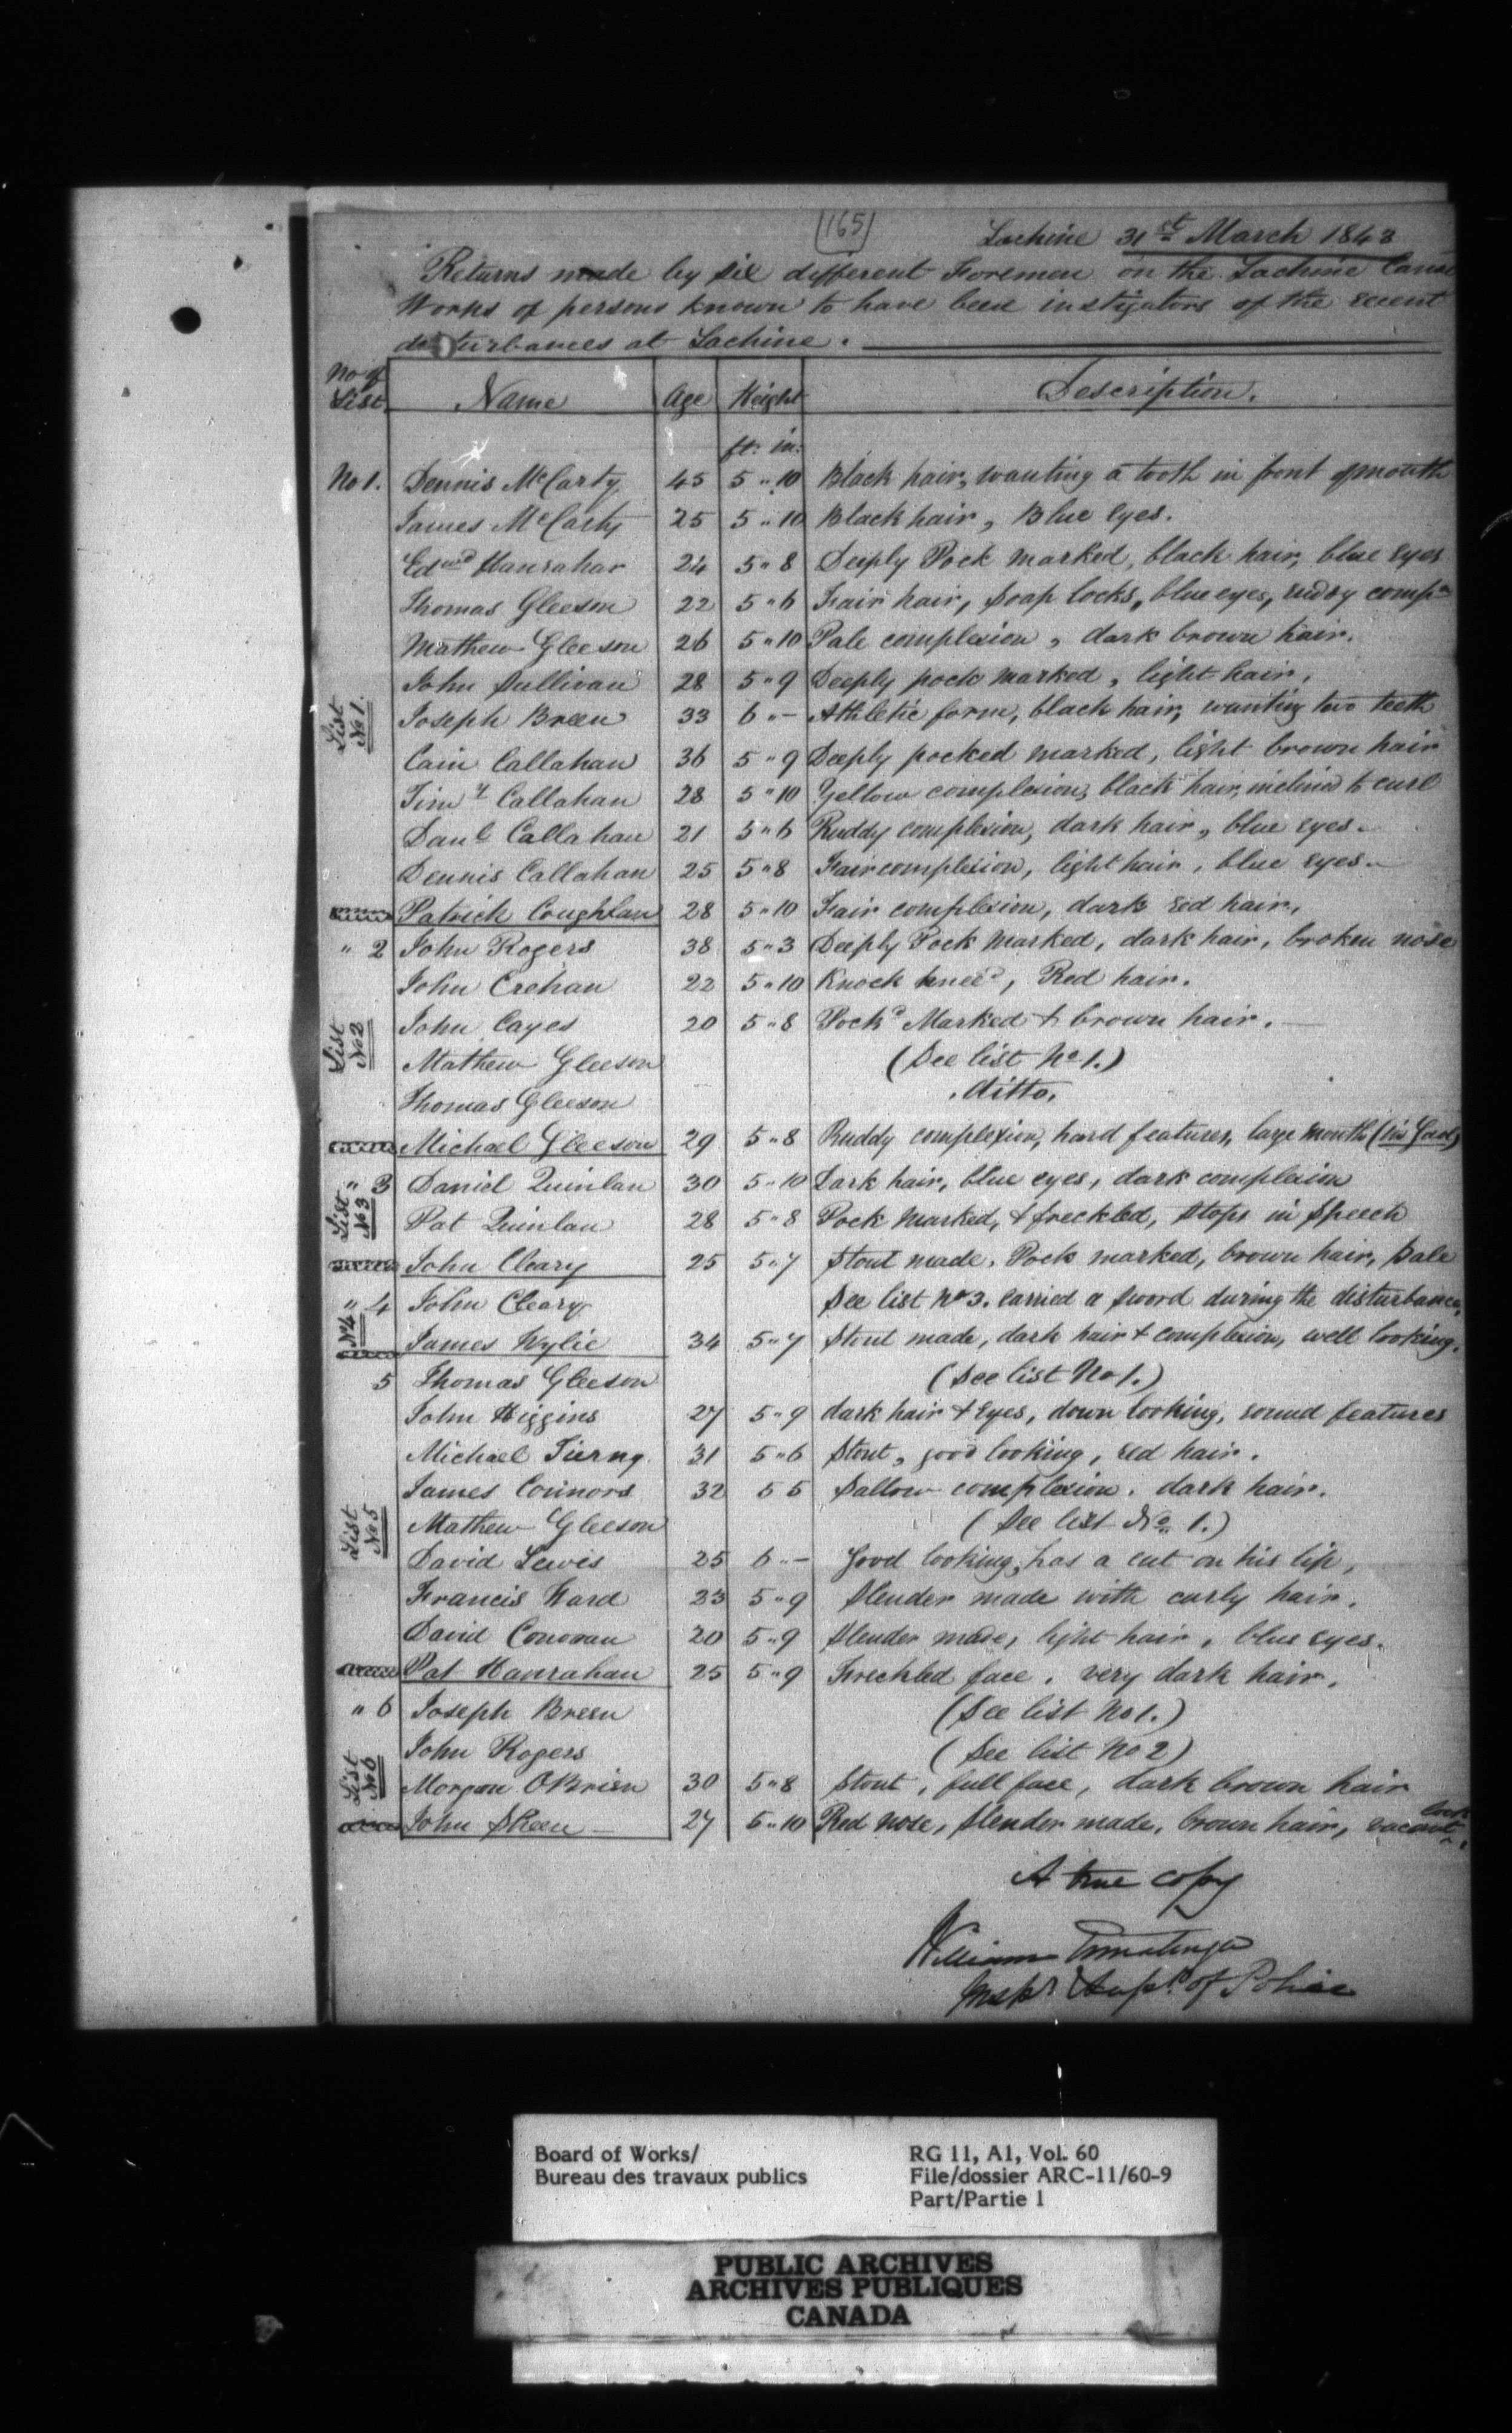 (165)
Lachine 31st March 1843
Returns made by six different Foremen on the Lachine Canal
Works of persons known to have been instigators of the recent
disturbances at Lachine.
No of List Name Age Height Description.
ft: in:
No 1. Dennis McCarty 45 5 " 10 Black hair, wanting a tooth in front of mouth
James McCarty 25 5 " 10 Black hair, Blue Eyes.
Edwd Hanrahan 24 5 " 8 Deeply Pock marked, black hair, blue eyes
Thomas Gleeson 22 5 " 6 Fair hair, Soap locks, blue eyes, rudy compn
Mathew Gleeson 26 5 " 10 Pale complexion, dark brown hair.
John Sullivan 28 5 " 9 Deeply pock marked, light hair,
List No 1. Joseph Breen 33 6 " - Athletic form, black hair, wanting two teeth
Cain Callahan 36 5 " 9 Deeply pocked marked, light brown hair
Timy Callahan 28 5 " 10 Yellow complexion, black hair, inclined to curl
Danl Callahan 21 5 " 6 Ruddy complexion, dark hair, blue eyes.
Dennis Callahan 25 5 " 8 Fair complexion, light hair, blue eyes.
Patrick Coughlan 28 5 " 10 Fair complexion, dark red hair,
" 2 John Rogers 38 5 " 3 Deeply Pock marked, dark hair, broken nose
John Crehan 22 5 " 10 Knock kneed, Red hair.
List No 2 John Cayes 20 5 " 8 Pockd Marked & brown hair.
Mathew Gleeson (See list No 1.)
Thomas Gleeson . ditto.
Michael Gleeson 29 5 " 8 Ruddy complexion, hard features, large mouth (in Gaol)
" 3 Daniel Quinlan 30 5 " 10 Dark hair, blue eyes, dark complexion
List No 3 Pat Quinlan 28 5 " 8 Pock marked, & freckled, stops in Speech
John Cleary 25 5 " 7 Stout made, Pock marked, brown hair, pale
" 4 John Cleary See list No 3. carried a sword during the disturbance,
No 4 James Wylie 34 5 " 7 Stout made, dark hair & complexion, well looking.
5 Thomas Gleeson (See list No 1.)
John Higgins 27 5 " 9 dark hair & Eyes, down looking, round features
Michael Tierny 31 5 " 6 Stout, good looking, red hair.
James Connors 32 5 5 Sallow complexion. dark hair.
List No 5 Mathew Gleeson (See list No. 1.)
David Lewis 25 6 " - Good looking, has a cut on his lip,
Francis Ward 23 5 " 9 Slender made with curly hair.
David Conovan 20 5 " 9 Slender made, light hair, blue eyes.
Pat Hanrahan 25 5 " 9 Freckled face. very dark hair.
" 6 Joseph Breen (See list No 1.)
John Rogers (See list No 2)
List No 6 Morgan OBrien 30 5 " 8 Stout, full face, dark brown hair
John Skeen 27 5 " 10 Red nose, Slender made, brown hair, vacant look.
A true copy
William Ermatinger
Inspr & Supt. of Police
Board of Works/
Bureau des travaux publics
RG 11, A1, Vol. 60
File/dossier ARC-11/60-9
Part/Partie 1
PUBLIC ARCHIVES
ARCHIVES PUBLIQUES
CANADA